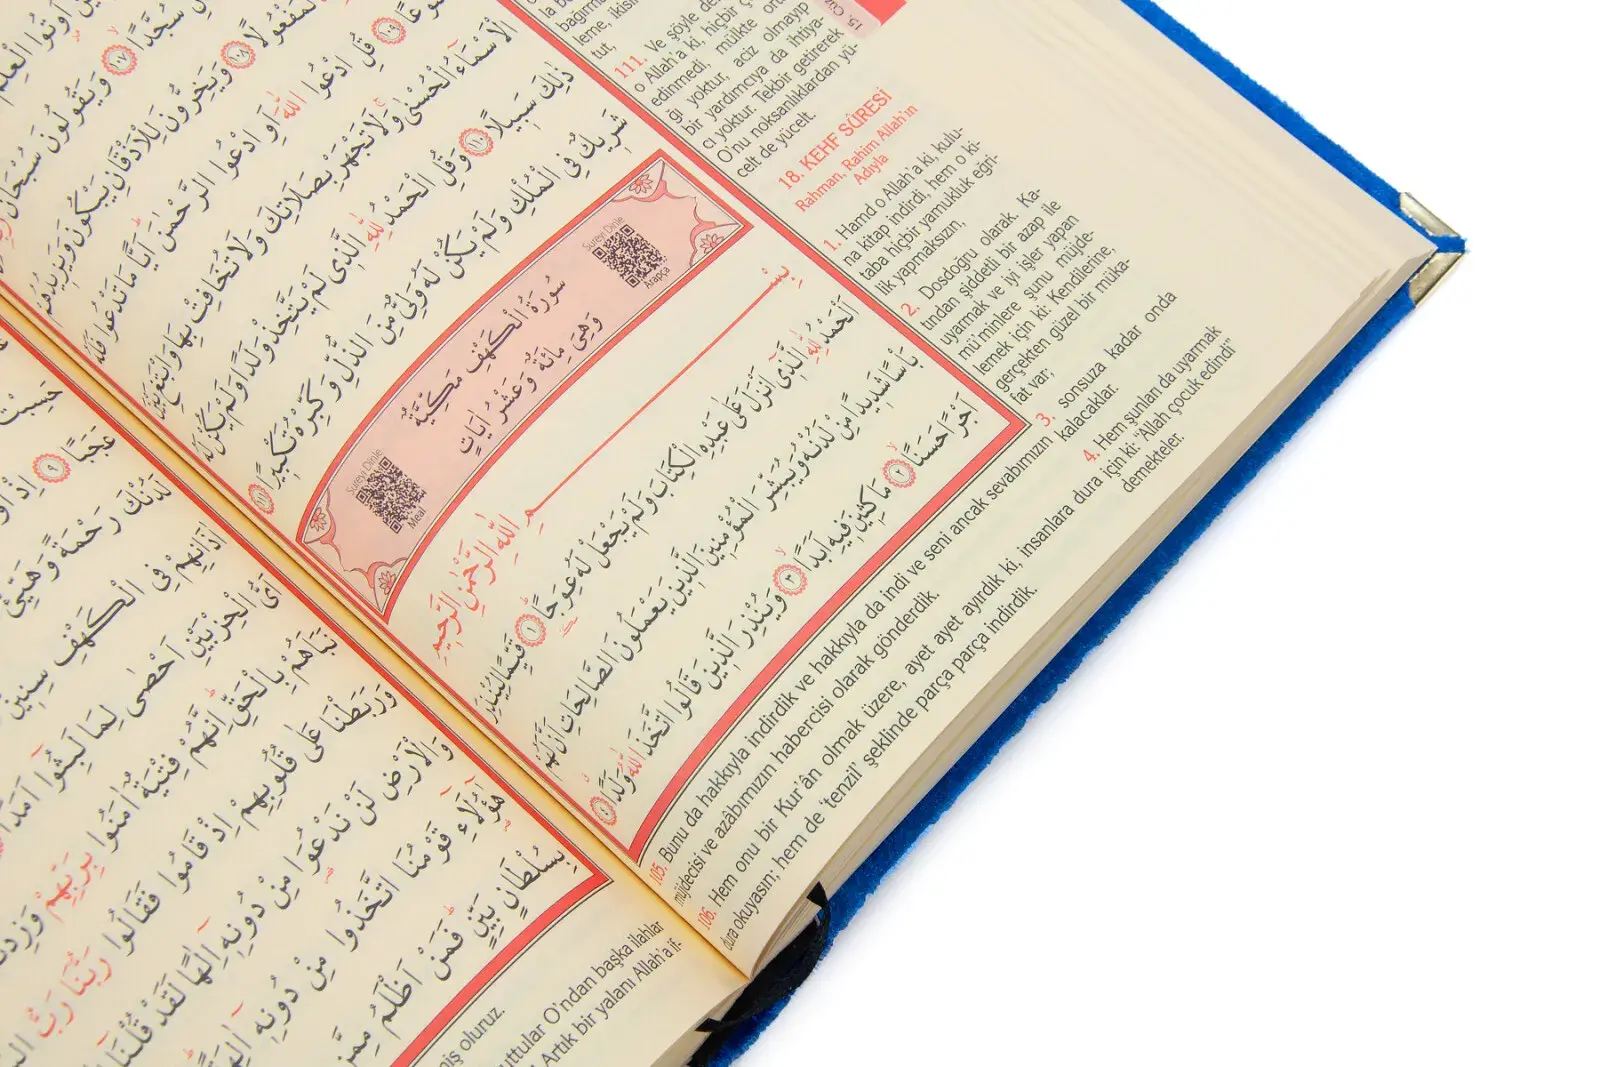 آوتُوا الْعِلْمَ
سُجَّدًا ﴿١٠٧﴾ وَيَقُولُونَ سُبْحَانَ
لَمَفْعُولًا ﴿١٠٨﴾ وَيَخِرُّونَ لِلْاَذْقَانِ يَبْكُونَ وَيَزِيدُهُمْ
﴿١٠٩﴾ قُلِ ادْعُوا اللّٰهَ اَوِ ادْعُوا الرَّحْمٰنَۜ اَيًّا مَا تَدْعُوا فَلَهُ
الْاَسْمَٓاءُ الْحُسْنٰىۚ وَلَا تَجْهَرْ بِصَلَاتِكَ وَلَا تُخَافِتْ بِهَا وَابْتَغِ بَيْنَ
ذٰلِكَ سَبِيلًا ﴿١١٠﴾ وَقُلِ الْحَمْدُ لِلّٰهِ الَّذِى لَمْ يَتَّخِذْ وَلَدًا وَلَمْ يَكُنْ لَهُ
شَرِيكٌ فِى الْمُلْكِ وَلَمْ يَكُنْ لَهُ وَلِىٌّ مِنَ الذُّلِّ وَكَبِّرْهُ تَكْبِيرًا ﴿١١١﴾
Sureyi Dinle
Arapça
سُورَةُ الْكَهْفِ مَكِّيَّةٌ
وَهِىَ مِائَةٌ وَعَشْرُ اٰيَاتٍ
Sureyi Dinle
Meal
بِسْمِ اللّٰهِ الرَّحْمٰنِ الرَّحِيمِ
اَلْحَمْدُ لِلّٰهِ الَّذِٓى اَنْزَلَ عَلٰى عَبْدِهِ الْكِتَابَ وَلَمْ يَجْعَلْ لَهُ عِوَجًا ﴿١﴾ قَيِّمًا لِيُنْذِرَ
بَأْسًا شَدِيدًا مِنْ لَدُنْهُ وَيُبَشِّرَ الْمُؤْمِنِينَ الَّذِينَ يَعْمَلُونَ الصَّالِحَاتِ اَنَّ لَهُمْ
اَجْرًا حَسَنًا ﴿٢﴾ مَاكِثِينَ فِيهِ اَبَدًا ﴿٣﴾ وَيُنْذِرَ الَّذِينَ قَالُوا اتَّخَذَ اللّٰهُ وَلَدًا ﴿٤﴾
15. Cüz
tut,
111. Ve şöyle de
o Allah'a ki, hiçbir ç
edinmedi, mülkte ort
ğı yoktur, aciz olmayıp
bir yardımcıya da ihtiya-
cı yoktur. Tekbir getirerek
O'nu noksanlıklardan yü-
celt de yücelt.
18. KEHF SÛRESİ
Rahman, Rahim Allah'ın
Adıyla
1. Hamd o Allah'a ki, kulu-
na kitap indirdi, hem o ki-
taba hiçbir yamukluk eğri-
lik yapmaksızın,
2. Dosdoğru olarak. Ka-
tından şiddetli bir azap ile
uyarmak ve iyi işler yapan
mü'minlere şunu müjde-
lemek için ki: Kendilerine,
gerçekten güzel bir müka-
fat var;
3. sonsuza kadar onda
kalacaklar.
4. Hem şunları da uyarmak
için ki: "Allah çocuk edindi"
demekteler.
105. Bunu da hakkıyla indirdik ve hakkıyla da indi ve seni ancak sevabımızın
müjdecisi ve azâbımızın habercisi olarak gönderdik.
106. Hem onu bir Kur'ân olmak üzere, ayet ayet ayırdık ki, insanlara dura
dura okuyasın; hem de 'tenzil' şeklinde parça parça indirdik.
حَسِبْتَ
عَجَبًا ﴿٩﴾ اِذْ
لَدُنْكَ رَحْمَةً وَهَيِّئْ
اٰذَانِهِمْ فِى الْكَهْفِ سِنِينَ
اَىُّ الْحِزْبَيْنِ اَحْصٰى لِمَا لَبِثُٓوا اَمَدًا
نَبَاَهُمْ بِالْحَقِّۜ اِنَّهُمْ فِتْيَةٌ اٰمَنُوا بِرَبِّهِمْ وَزِدْنَ
وَرَبَطْنَا عَلٰى قُلُوبِهِمْ اِذْ قَامُوا فَقَالُوا رَبُّنَا رَبُّ
وَالْاَرْضِ لَنْ نَدْعُوَا مِنْ دُونِهِٓ اِلٰهًا لَقَدْ قُلْنَٓا
هٰٓؤُ۬لَٓاءِ قَوْمُنَا اتَّخَذُوا مِنْ دُونِهِٓ اٰلِهَةًۜ
بِسُلْطَانٍ بَيِّنٍۜ فَمَنْ اَظْلَمُ مِمَّنِ
miş oluruz.
uttular O'ndan başka ilahlar
Artık bir yalanı Allah'a if-